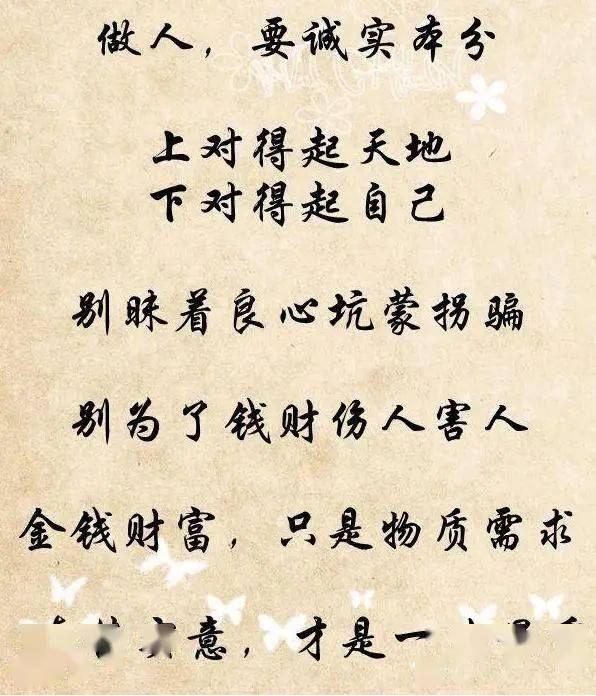 做人，要诚实本分
上对得起天地
下对得起自己
别昧着良心坑蒙拐骗
别为了钱财伤人害人
金钱财富，只是物质需求
意，才是一